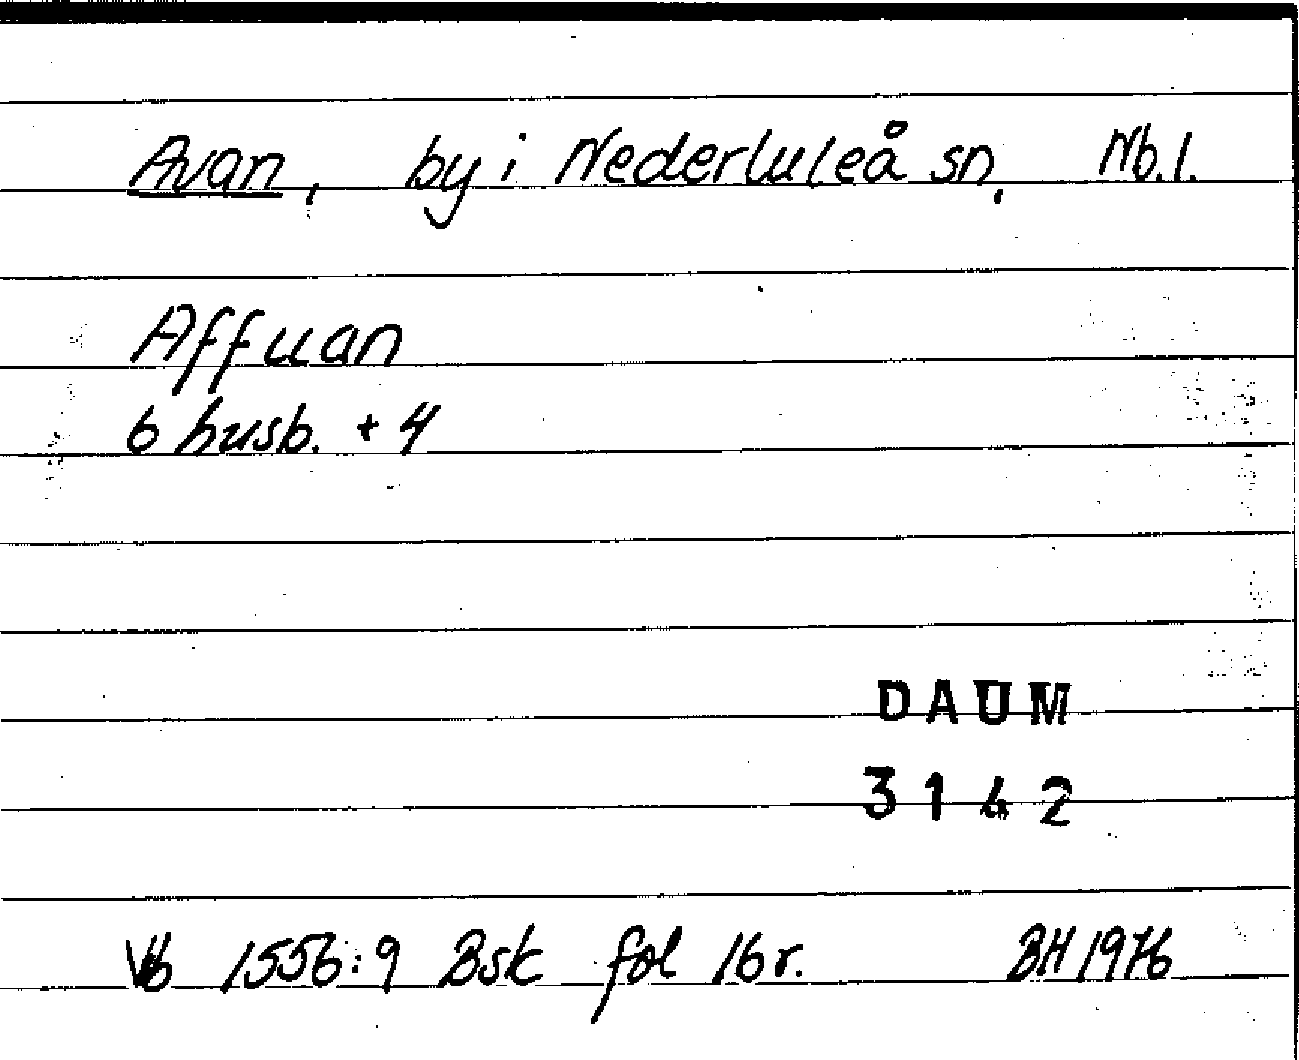 Avan, by i Nederluleå sn. Nb.l.
Affuan
6 husb. + 4
DAUM
3142
Vb 1556:9 Bsk fol 16 r. BH 1976